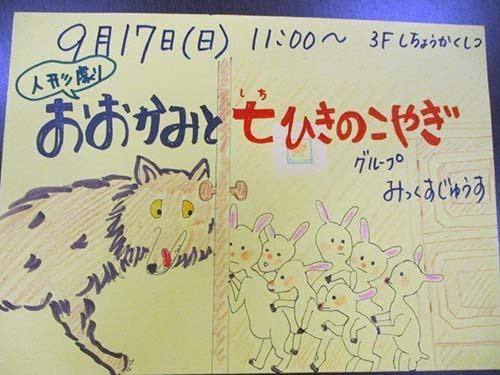 9月17日(日) 11:00〜 3Fしちょうかくしつ
人形劇
おおかみと七ひきのこやぎ
しち
グループ
みっくすじゅうす